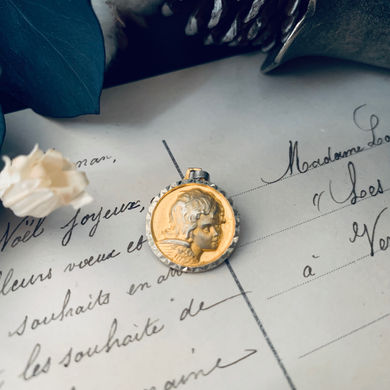 man,
Noël joyeux,
lleurs vœux et
souhaits en a
les souhaite de
maine
Madame Lo
"Les
à Ver